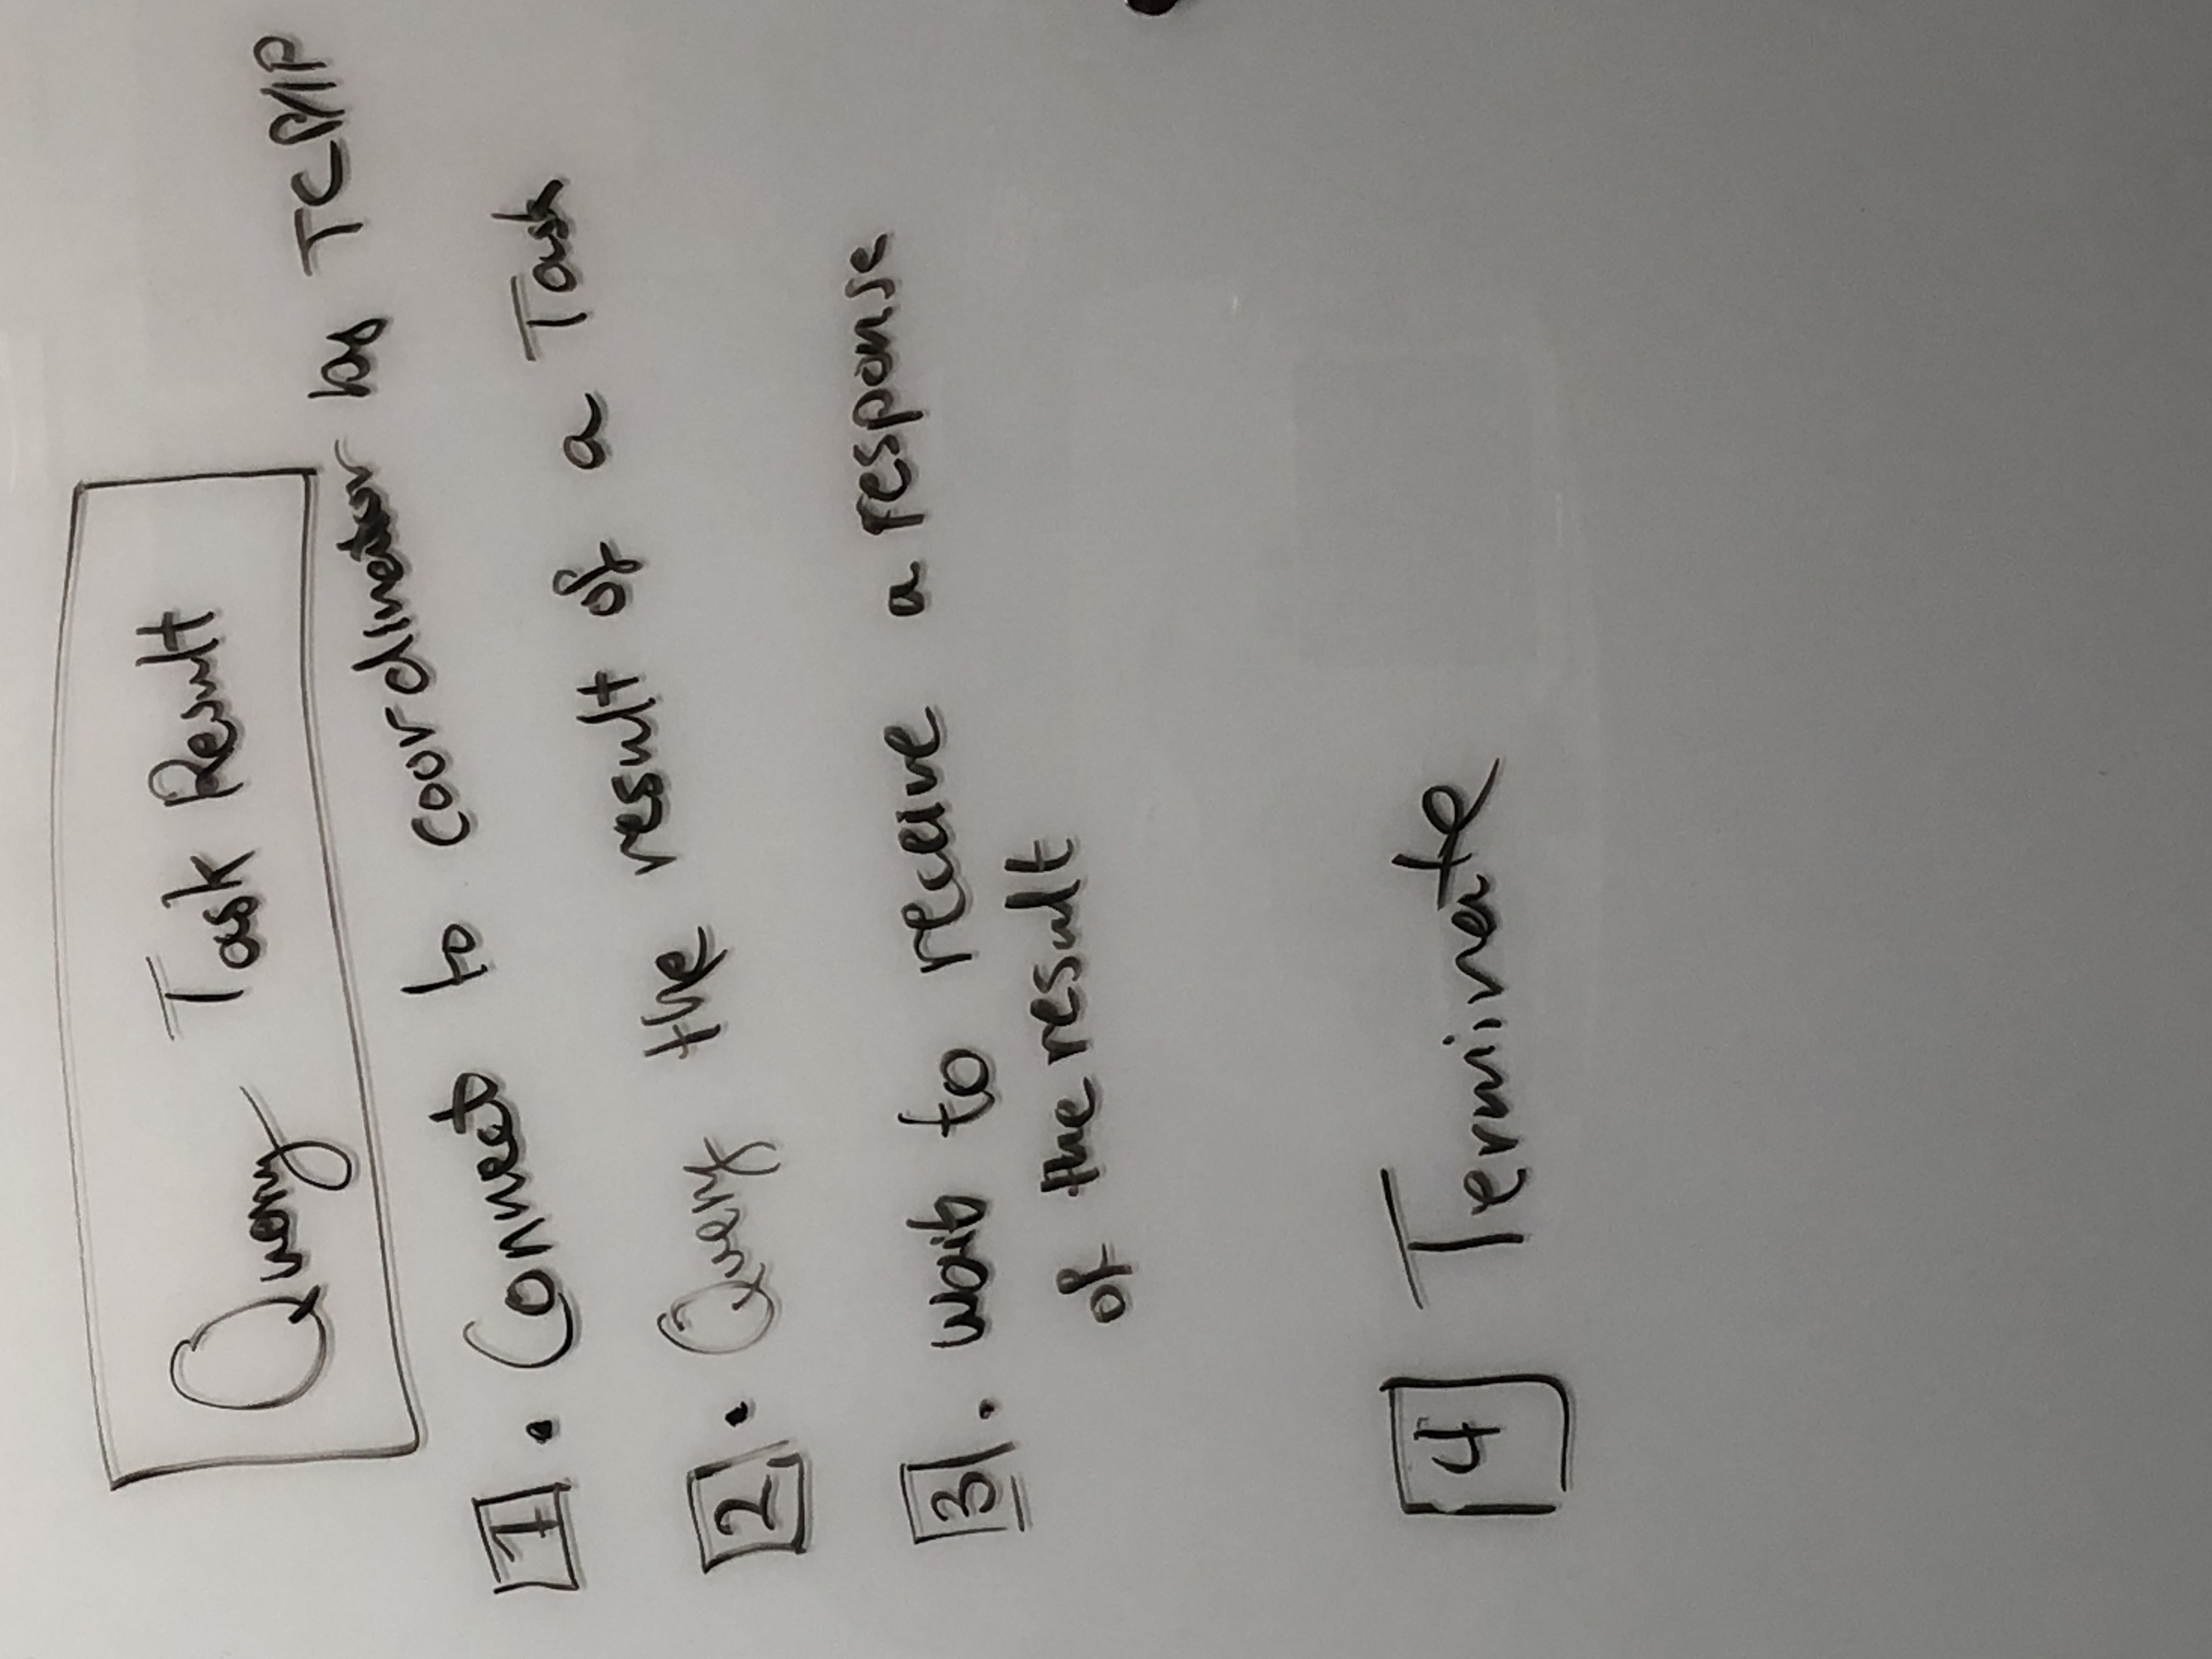 Query Task Result
1. Connect to coordinator by TCP/IP
2. Query the result of a Task
3. wait to receive a response
of the result
4 Terminate